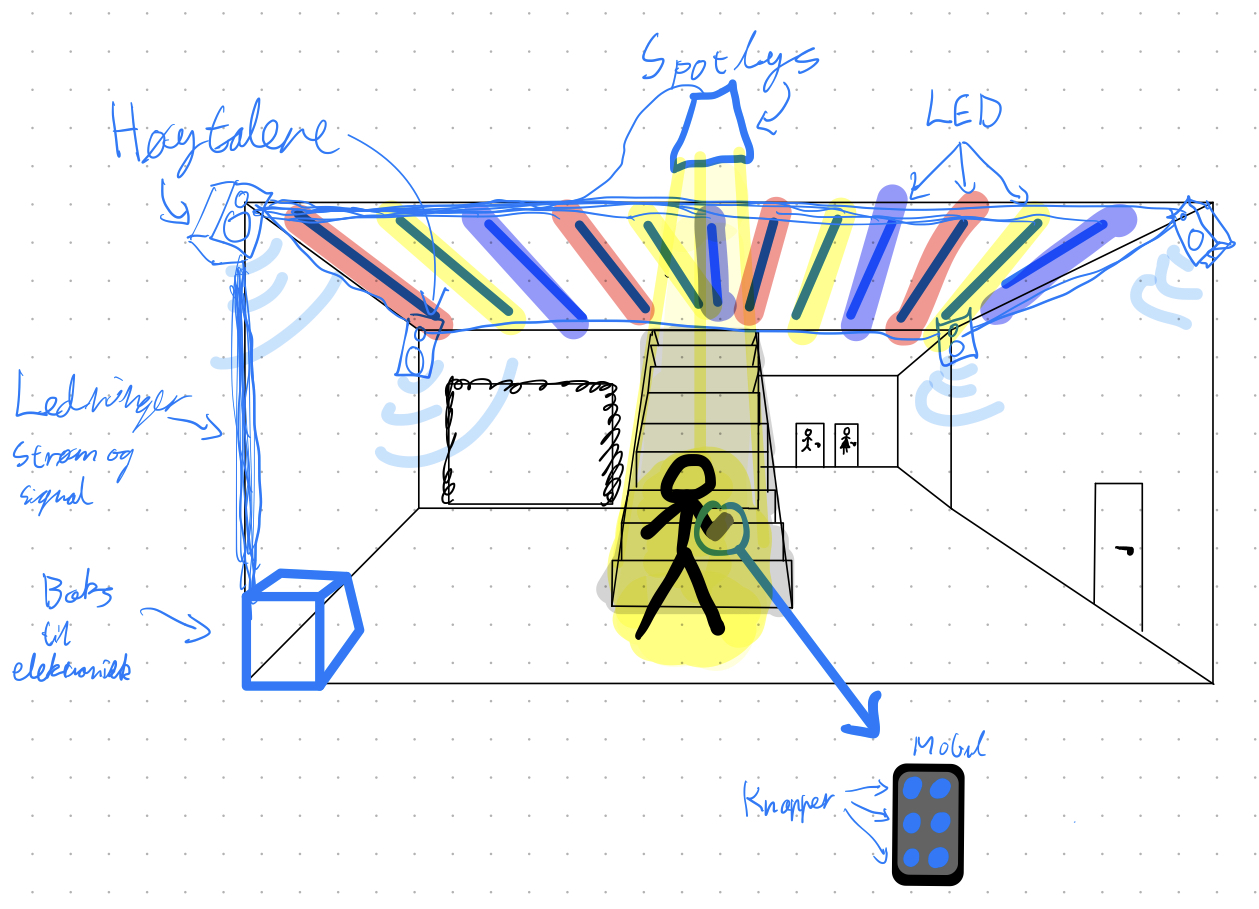 Spotlys
LED
Høytalere
Ledninger
Strøm og
signal
Boks
til
elektronikk
Mobil
Knapper